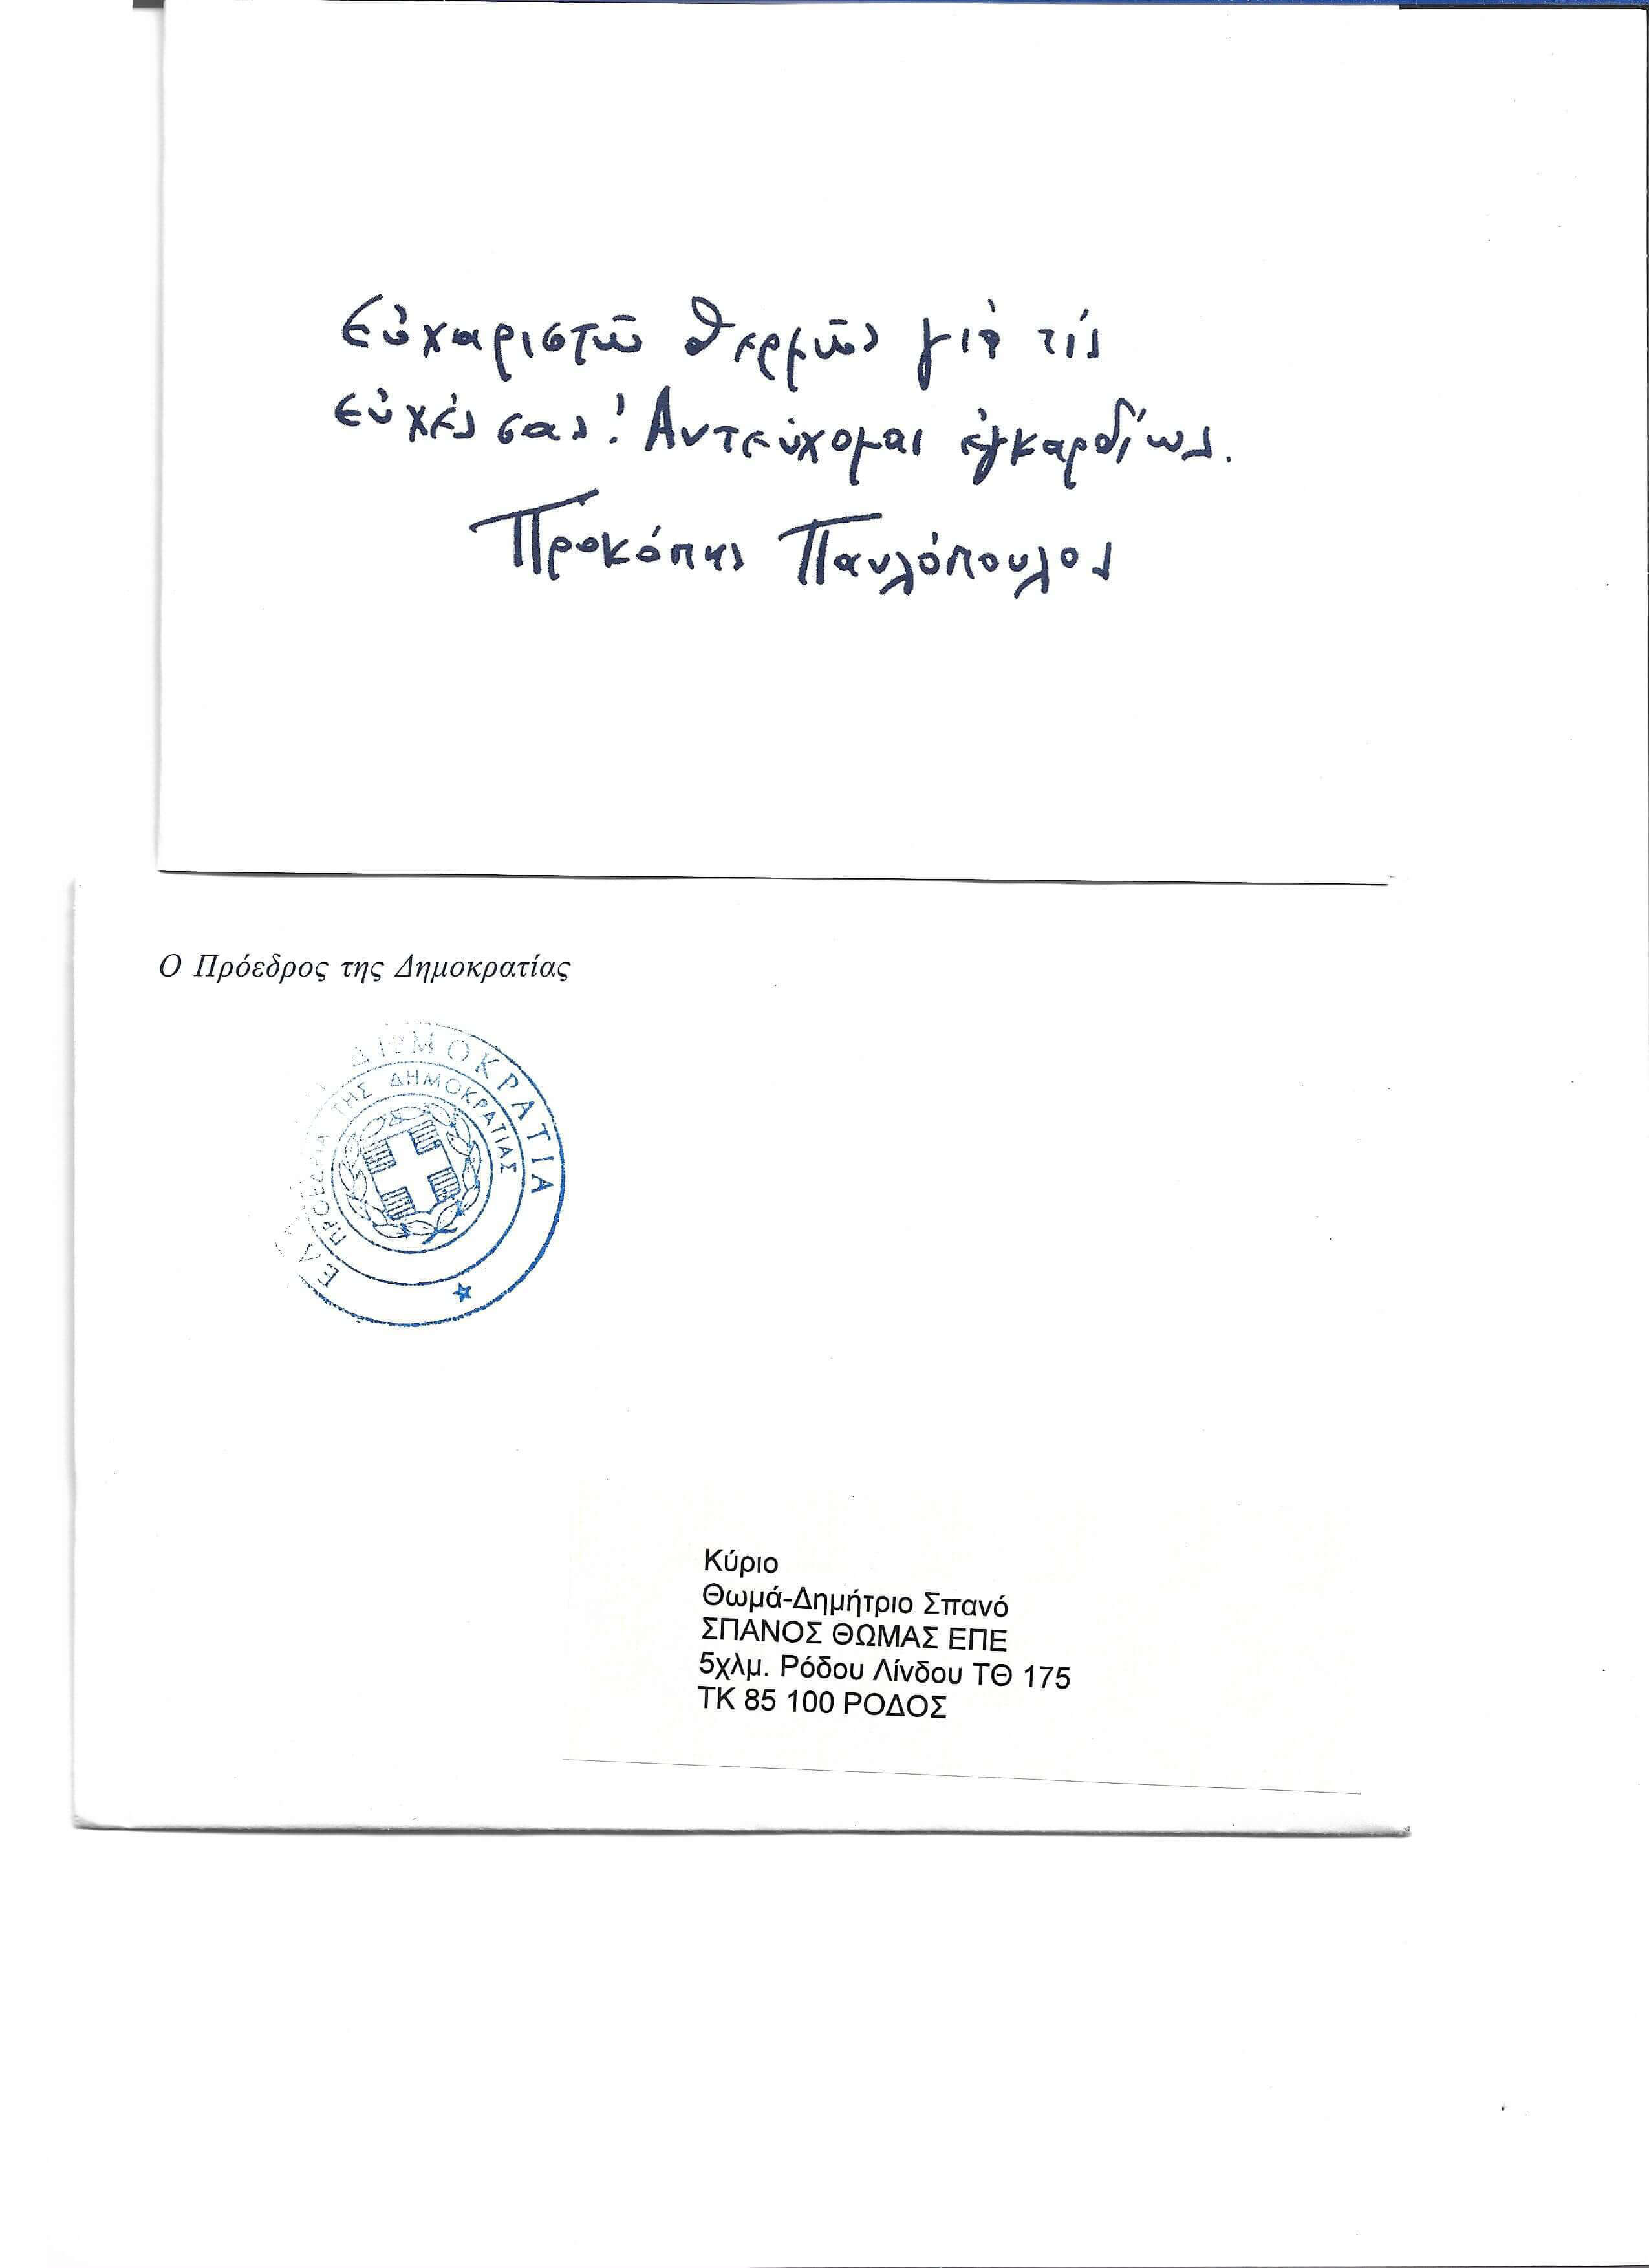 Εὐχαριστῶ θερμῶς γιὰ τίς
εὐχές σας! Αντεύχομαι ἐγκαρδίως.
Προκόπης Παυλόπουλος
Ο Πρόεδρος της Δημοκρατίας
ΔΗΜΟΚΡΑΤΙΑ
ΠΡΟΕΔΡΙΑ ΤΗΣ ΔΗΜΟΚΡΑΤΙΑΣ
Κύριο
Θωμά-Δημήτριο Σπανό
ΣΠΑΝΟΣ ΘΩΜΑΣ ΕΠΕ
5χλμ. Ρόδου Λίνδου ΤΘ 175
ΤΚ 85 100 ΡΟΔΟΣ